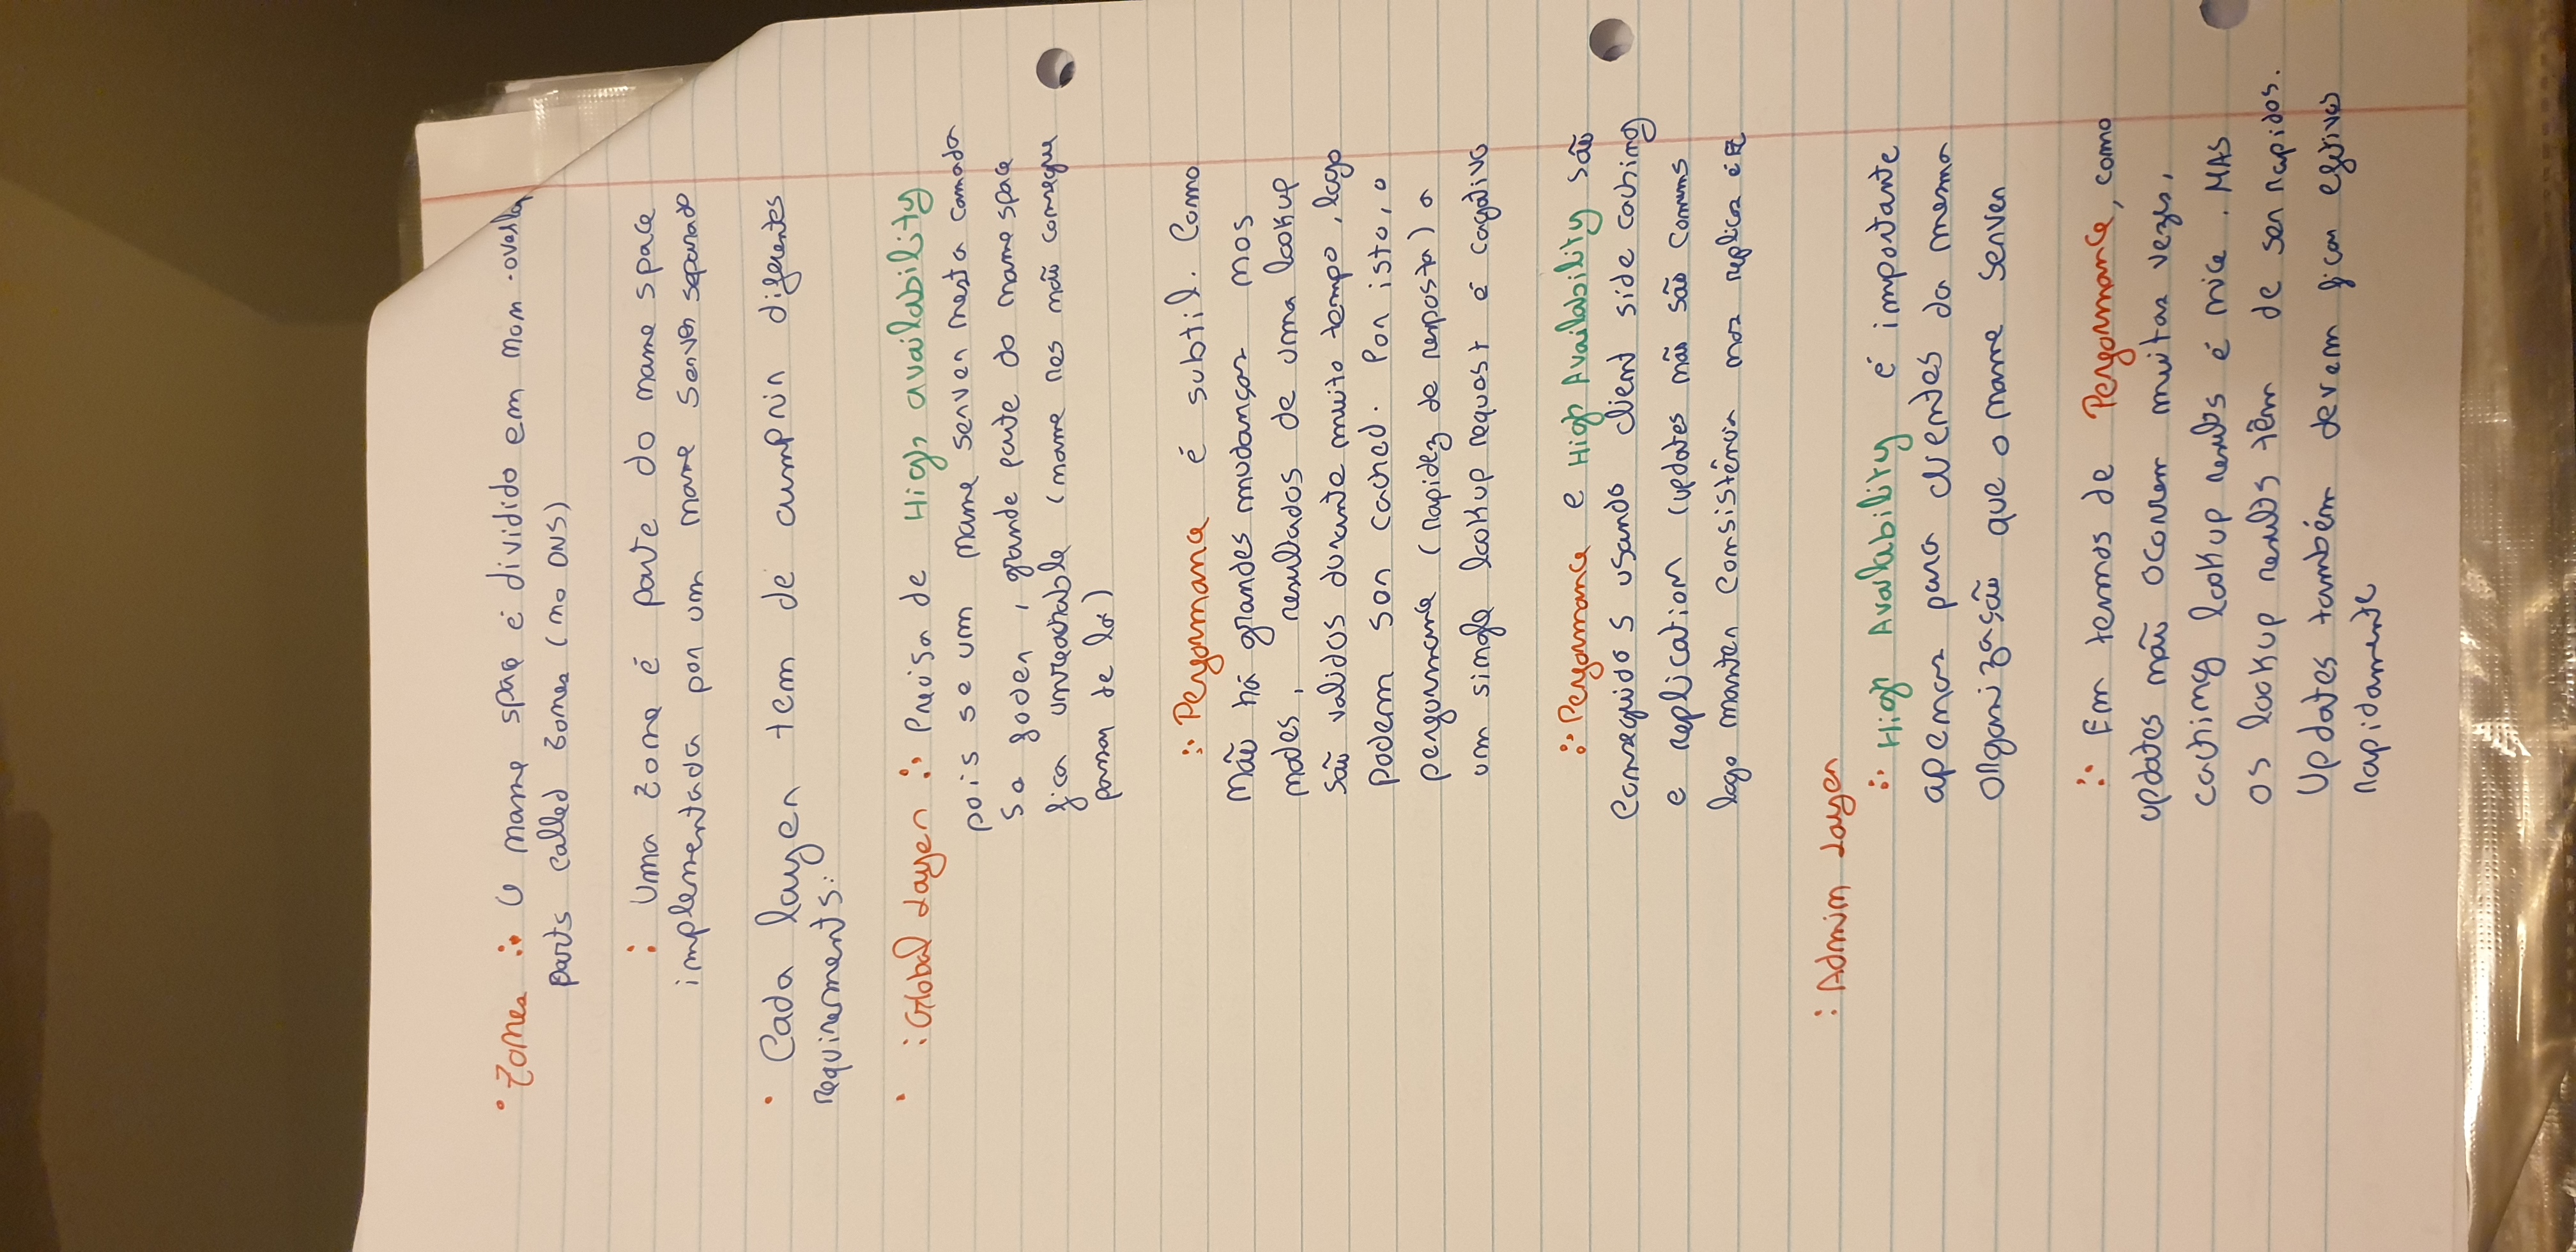 • Zones :• O name space é dividido em non-overlap
parts called zones (no DNS)
: Uma zone é parte do name space
implementada por um name server separado
• Cada layer tem de cumprir diferentes
requirements:
• : Global Layer :• Precisa de High availability
pois se um name server nesta camada
se foder, grande parte do name space
fica unreachable (name res não consegue
passar de lá)
:• Performance é subtil. Como
não há grandes mudanças nos
nodes, resultados de uma lookup
são validos durante muito tempo, logo
podem ser cached. Por isto, a
performance (rapidez de resposta) a
um single lookup request é cagativo
:• Performance e High Availability são
conseguidos usando client side caching
e replication (updates não são comuns
logo manter consistência nas replicas é EZ
: Admin Layer
:• High Availability é importante
apenas para clientes da mesma
organização que o name server
:• Em termos de Performance, como
updates não ocorrem muitas vezes,
caching lookup results é nice. MAS
os lookup results têm de ser rapidos.
Updates também devem ficar efetivos
rapidamente